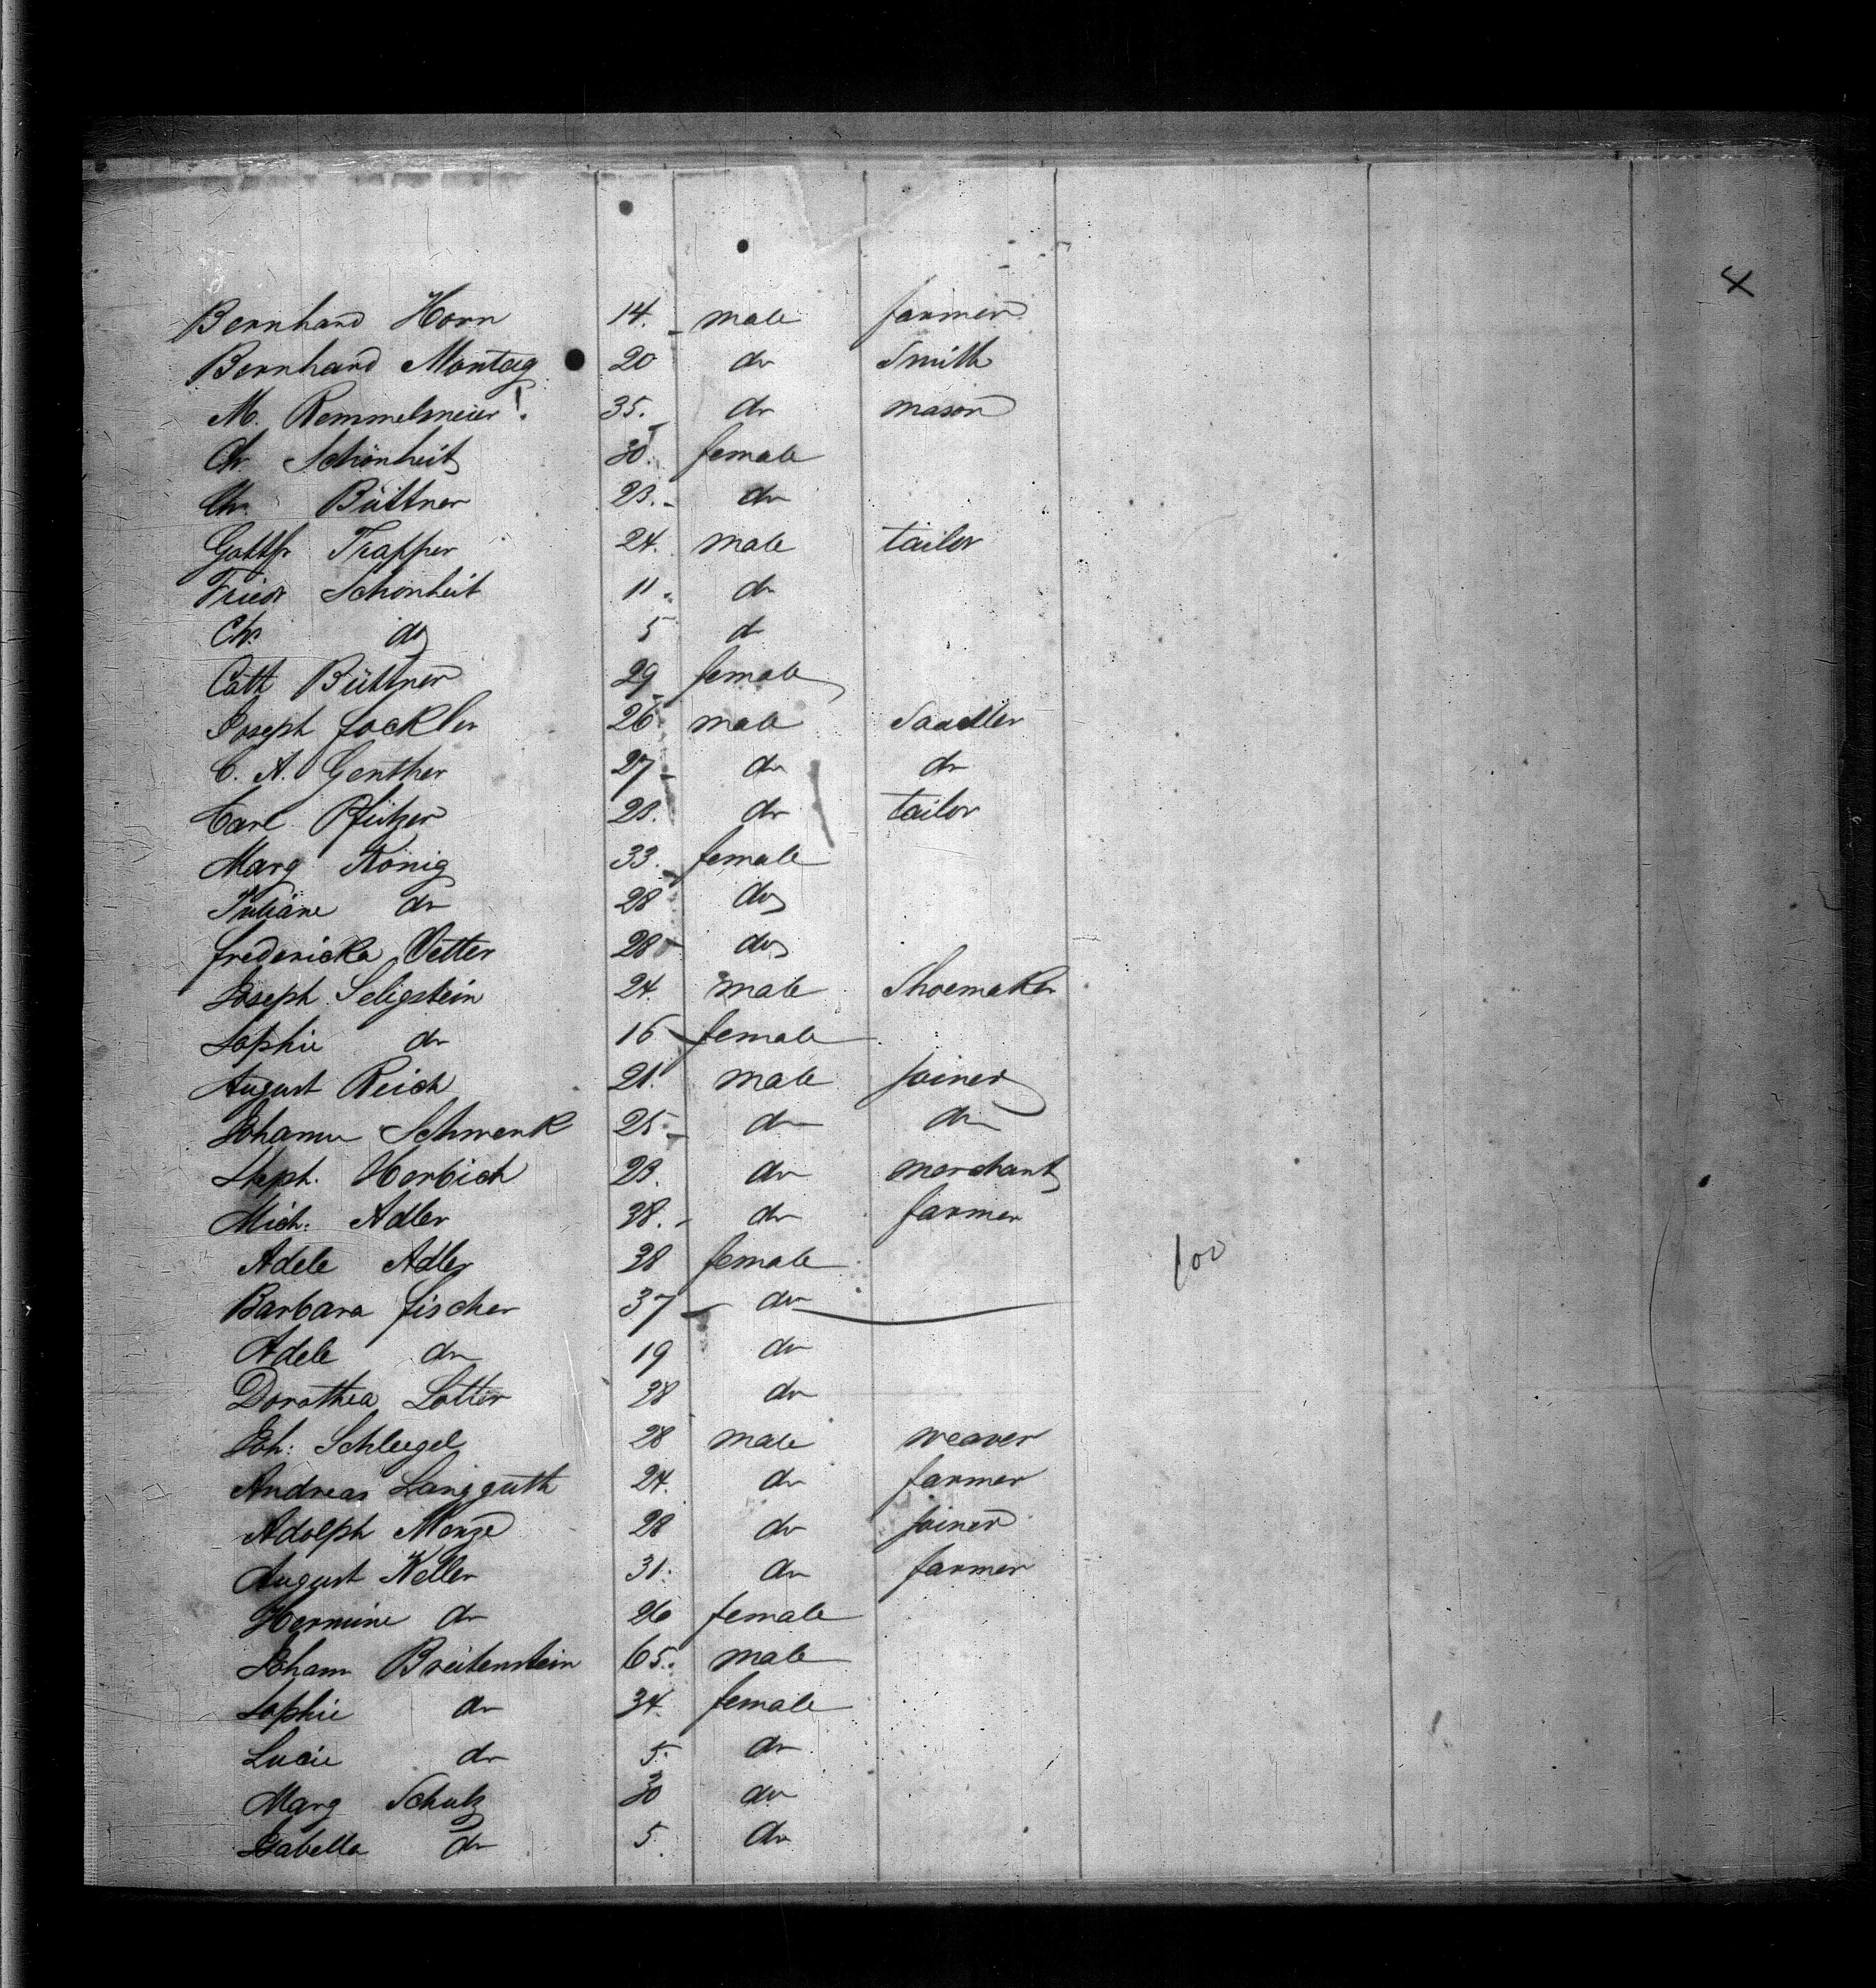 4
Bernhard Horn 14. male farmer
Bernhard Montag 20 do Smith
M. Remmelsmeier 35. do mason
Ch. Schönheit 30. female
Chr. Büttner 23. do
Gottfr Trapper 24. male tailor
Friedr Schönheit 11. do
Chr. do 5 do
Cath Büttner 29 female
Joseph Fockler 26 male Saddler
C. A. Genther 27 do do
Carl Pfützer 23. do tailor
Marg König 33. female
Juliane do 28 do
Fredericka Vetter 28 do
Joseph Seligstein 24. male Shoemaker
Sophie do 16 female
August Reich 21. male joiner
Johann Schwenk 25. do do
Steph. Herbich 23. do merchant
Mich. Adler 38. do farmer
Adele Adler 38 female
100
Barbara Fischer 37 do
Adele do 19 do
Dorothea Lotter 38 do
Joh: Schlegel 28 male weaver
Andreas Langguth 24. do farmer
Adolph Menge 28 do joiner
August Keller 31. do farmer
Hermine do 26 female
Joham Breitenstein 65. male
Sophie do 34. female
Lucie do 5. do
Marg Schulz 30 do
Isabella do 5. do